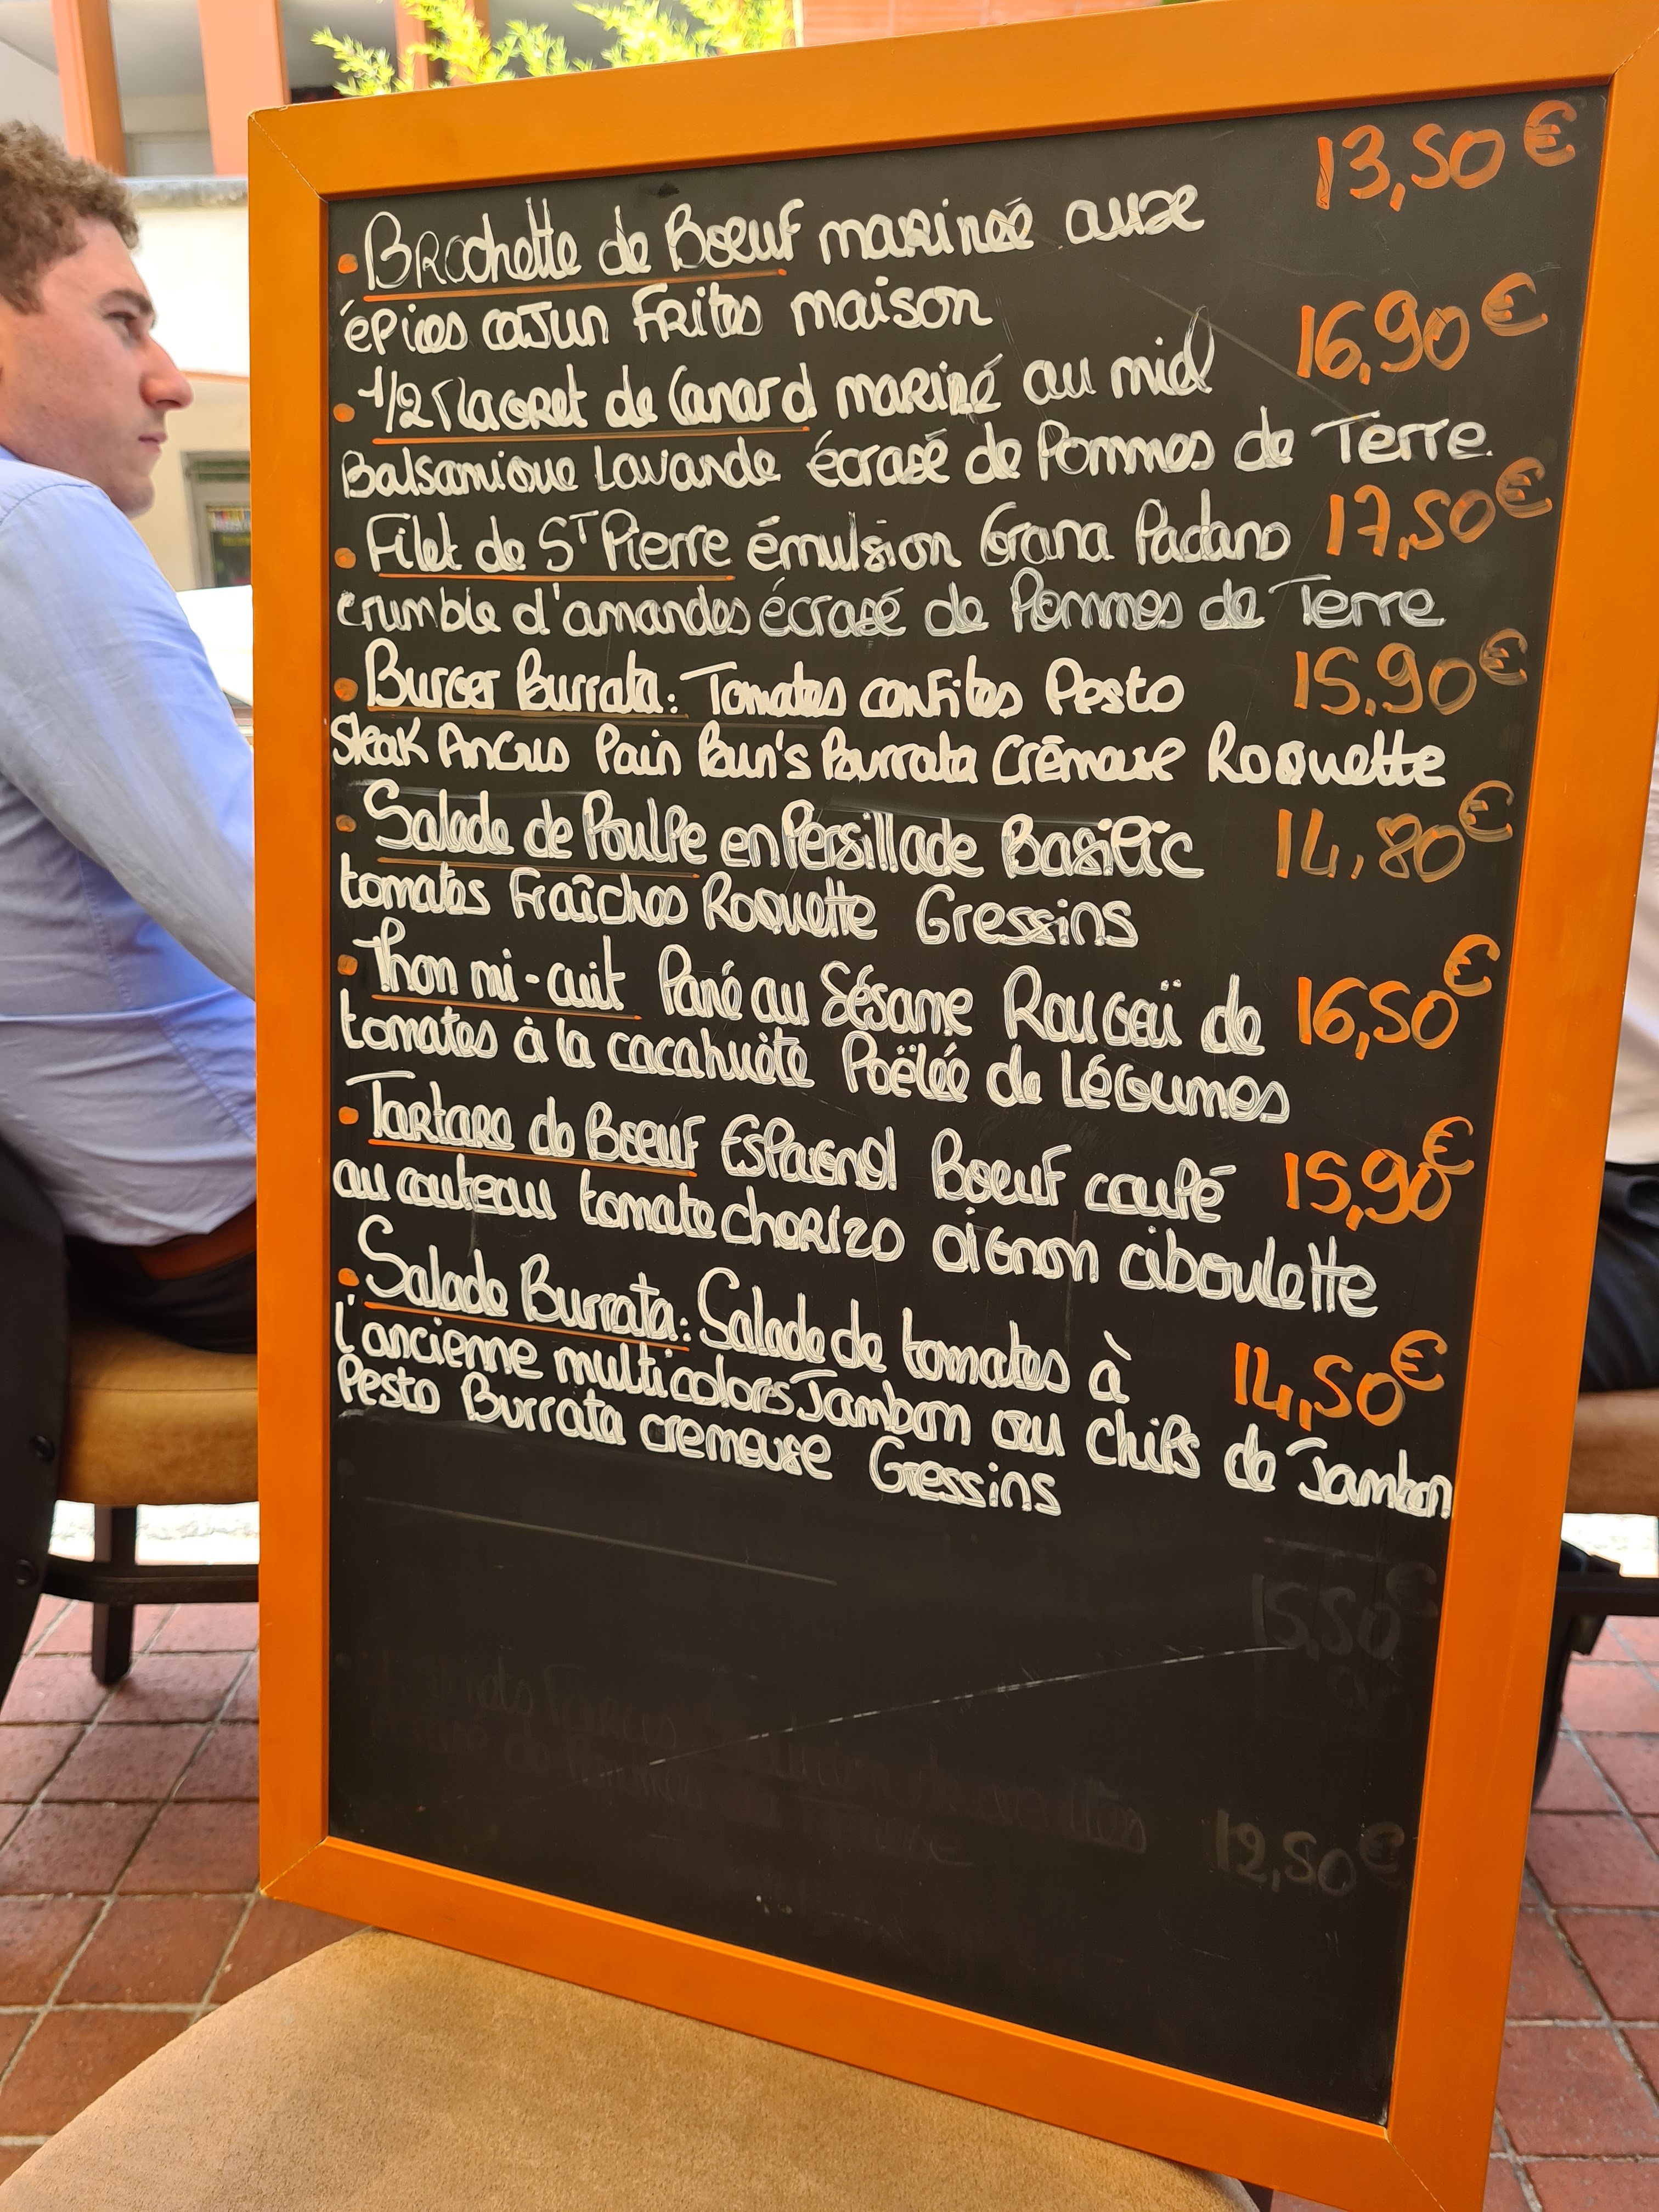 13,50€
• Brochette de Boeuf marineé aux
épices cajun Frites maison
16,90€
• 1/2 Magret de Canard mariné au miel
Balsamique Lavande écrasé de Pommes de Terre
• Filet de ST Pierre émulsion Grana Padano 17,50€
crumble d'amandes écrasé de Pommes de Terre
• Burger Burrata: Tomates confites Pesto 15,90€
Steak Angus Pain Bun's Burrata Crémeuse Roquette
• Salade de Poulpe en Persillade Basilic 14,80€
tomates Fraîches Roquette Gressins
• Thon mi-cuit Pané au Sésame Rougaï de 16,50€
tomates à la cacahuète Poëlée de Légumes
• Tartare de Boeuf Espagnol Boeuf coupé 15,90€
au couteau tomate chorizo oignon ciboulette
• Salade Burrata: Salade de tomates à 14,50€
l'ancienne multicolors Jambon cru Chips de Jambon
Pesto Burrata cremeuse Gressins
15,50€
12,50€